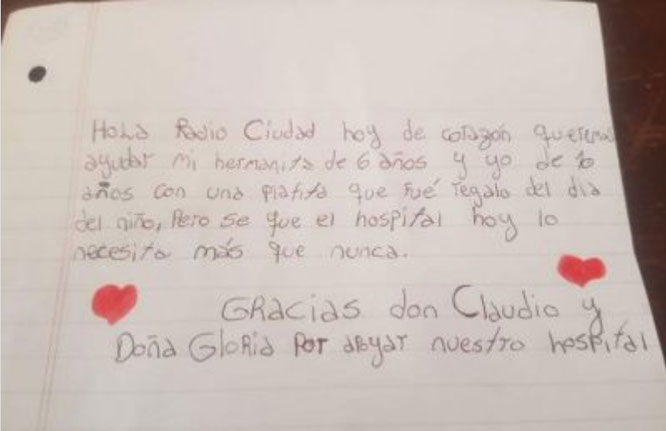 Hola Radio Ciudad hoy de corazón queremos
ayudar mi hermanita de 6 años y yo de 10
años con una platita que fué regalo del dia
del niño, Pero se que el hospital hoy lo
necesita más que nunca.
GRacias don Claudio y
Doña GloRia Por apoyar nuestro hospital